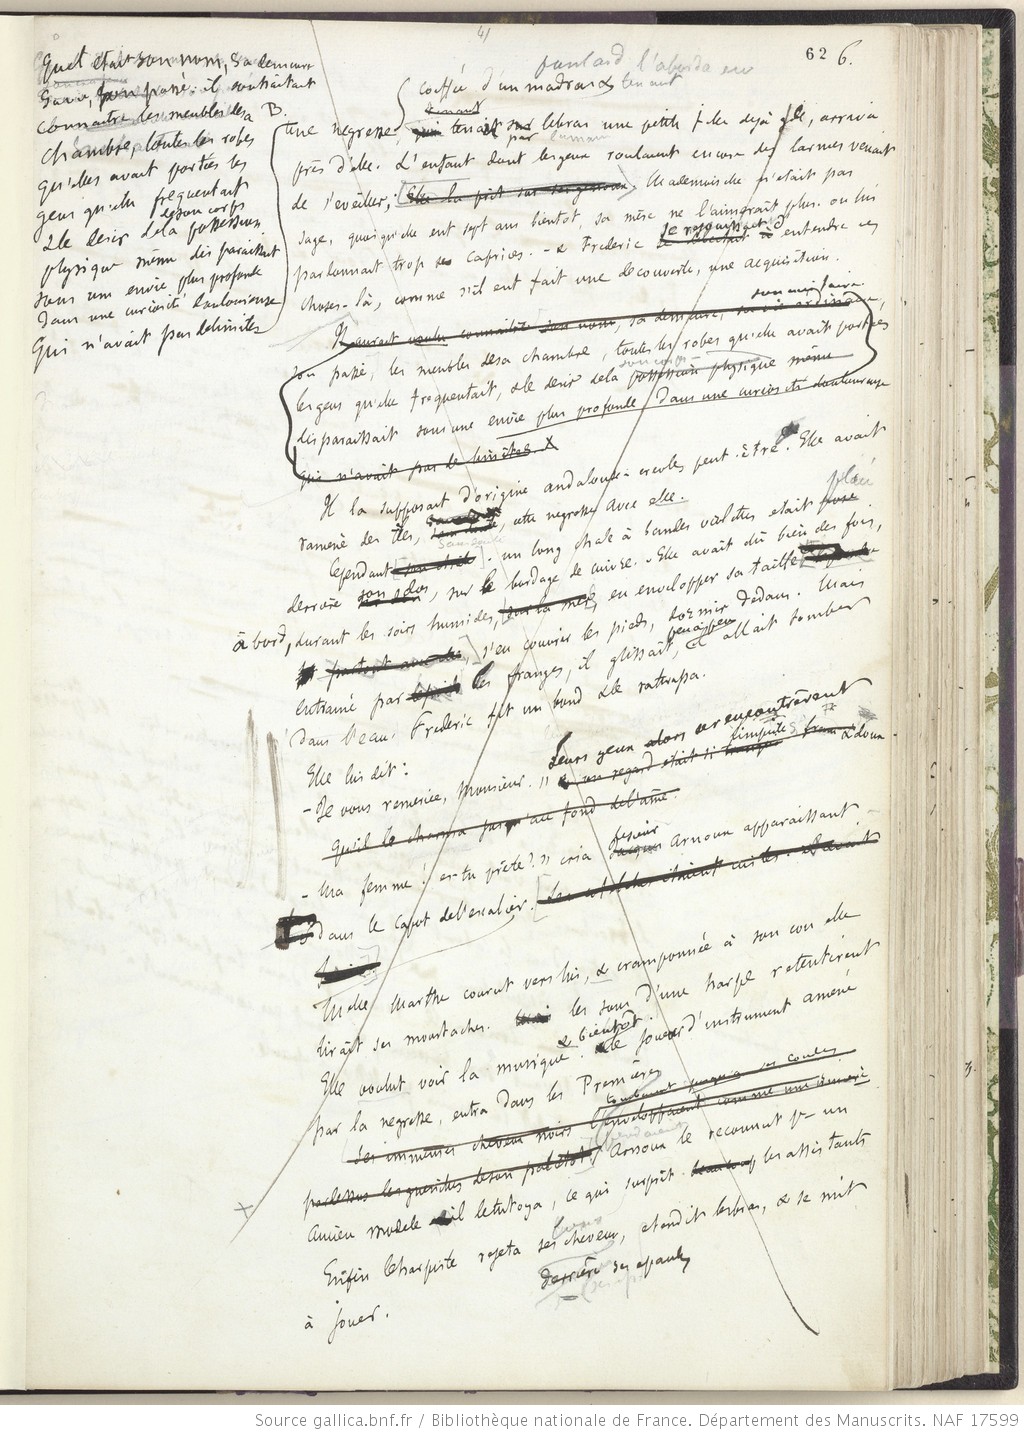 62 6.
Quel était son nom, sa demeure
sa vie, son passé; il souhaitait
connaître les meubles de sa
chambre, toutes les robes
qu'elle avait portées les
gens qu'elle fréquentait
& le désir de la possession
physique même disparaissait
sous une envie plus profonde
dans une curiosité douloureuse
qui n'avait pas de limites
B.
foulard l'aborda
coiffée d'un madras & tenant
Une négresse, tenait par la main une petite fille déjà grande, arriva
près d'elle. L'enfant dont les yeux roulaient encore des larmes venait
de s'éveiller; elle la prit sur ses genoux, Mademoiselle n'était pas
sage, quoiqu'elle eut sept ans bientôt, sa mère ne l'aimerait plus. on lui
pardonnait trop ses caprices. - & Frédéric se réjouissait d'entendre ces
choses-là, comme s'il eut fait une découverte, une acquisition.
Il aurait voulu connaître son nom, sa demeure,
son passé, les meubles de sa chambre, toutes les robes qu'elle avait portées
les gens qu'elle fréquentait, & le désir de la possession physique même
disparaissait sous une envie plus profonde, dans une curiosité douloureuse
qui n'avait pas de limites. X
Il la supposait d'origine andalouse - créole peut-être. Elle avait
ramené des îles, cette négresse avec elle.
Cependant un long châle à bandes violettes était placé
derrière son dos, sur le bordage de cuivre. Elle avait dû bien des fois,
à bord, durant les soirs humides, en envelopper sa taille
s'en couvrir les pieds, dormir dedans. Mais
entraîné par les franges, il glissait, peu à peu, il allait tomber
dans l'eau. Frédéric fit un bond & le rattrapa.
Elle lui dit:
- Je vous remercie, Monsieur. » Leurs yeux alors se rencontrèrent
& son regard était si limpide & doux
qu'il le charma jusqu'au fond de l'âme.
- Ma femme! es-tu prête? » cria le sieur Arnoux apparaissant
dans le capot de l'escalier.
Melle Marthe courut vers lui, & cramponnée à son cou elle
tirait ses moustaches. les sons d'une harpe retentirent
Elle voulut voir la musique. & bientôt le joueur d'instrument amené
par la négresse, entra dans les Premières
tombant jusqu'à ses coudes
Ses immenses cheveux noirs l'enveloppaient comme une
par dessus les guenilles de son paletot. Arnoux le reconnut pr un
ancien modèle il le tutoya, ce qui surprit les assistants
Enfin le harpiste rejeta ses longs cheveux, étendit les bras, & se mit
derrière ses épaules
à jouer.
Source gallica.bnf.fr / Bibliothèque nationale de France. Département des Manuscrits. NAF 17599